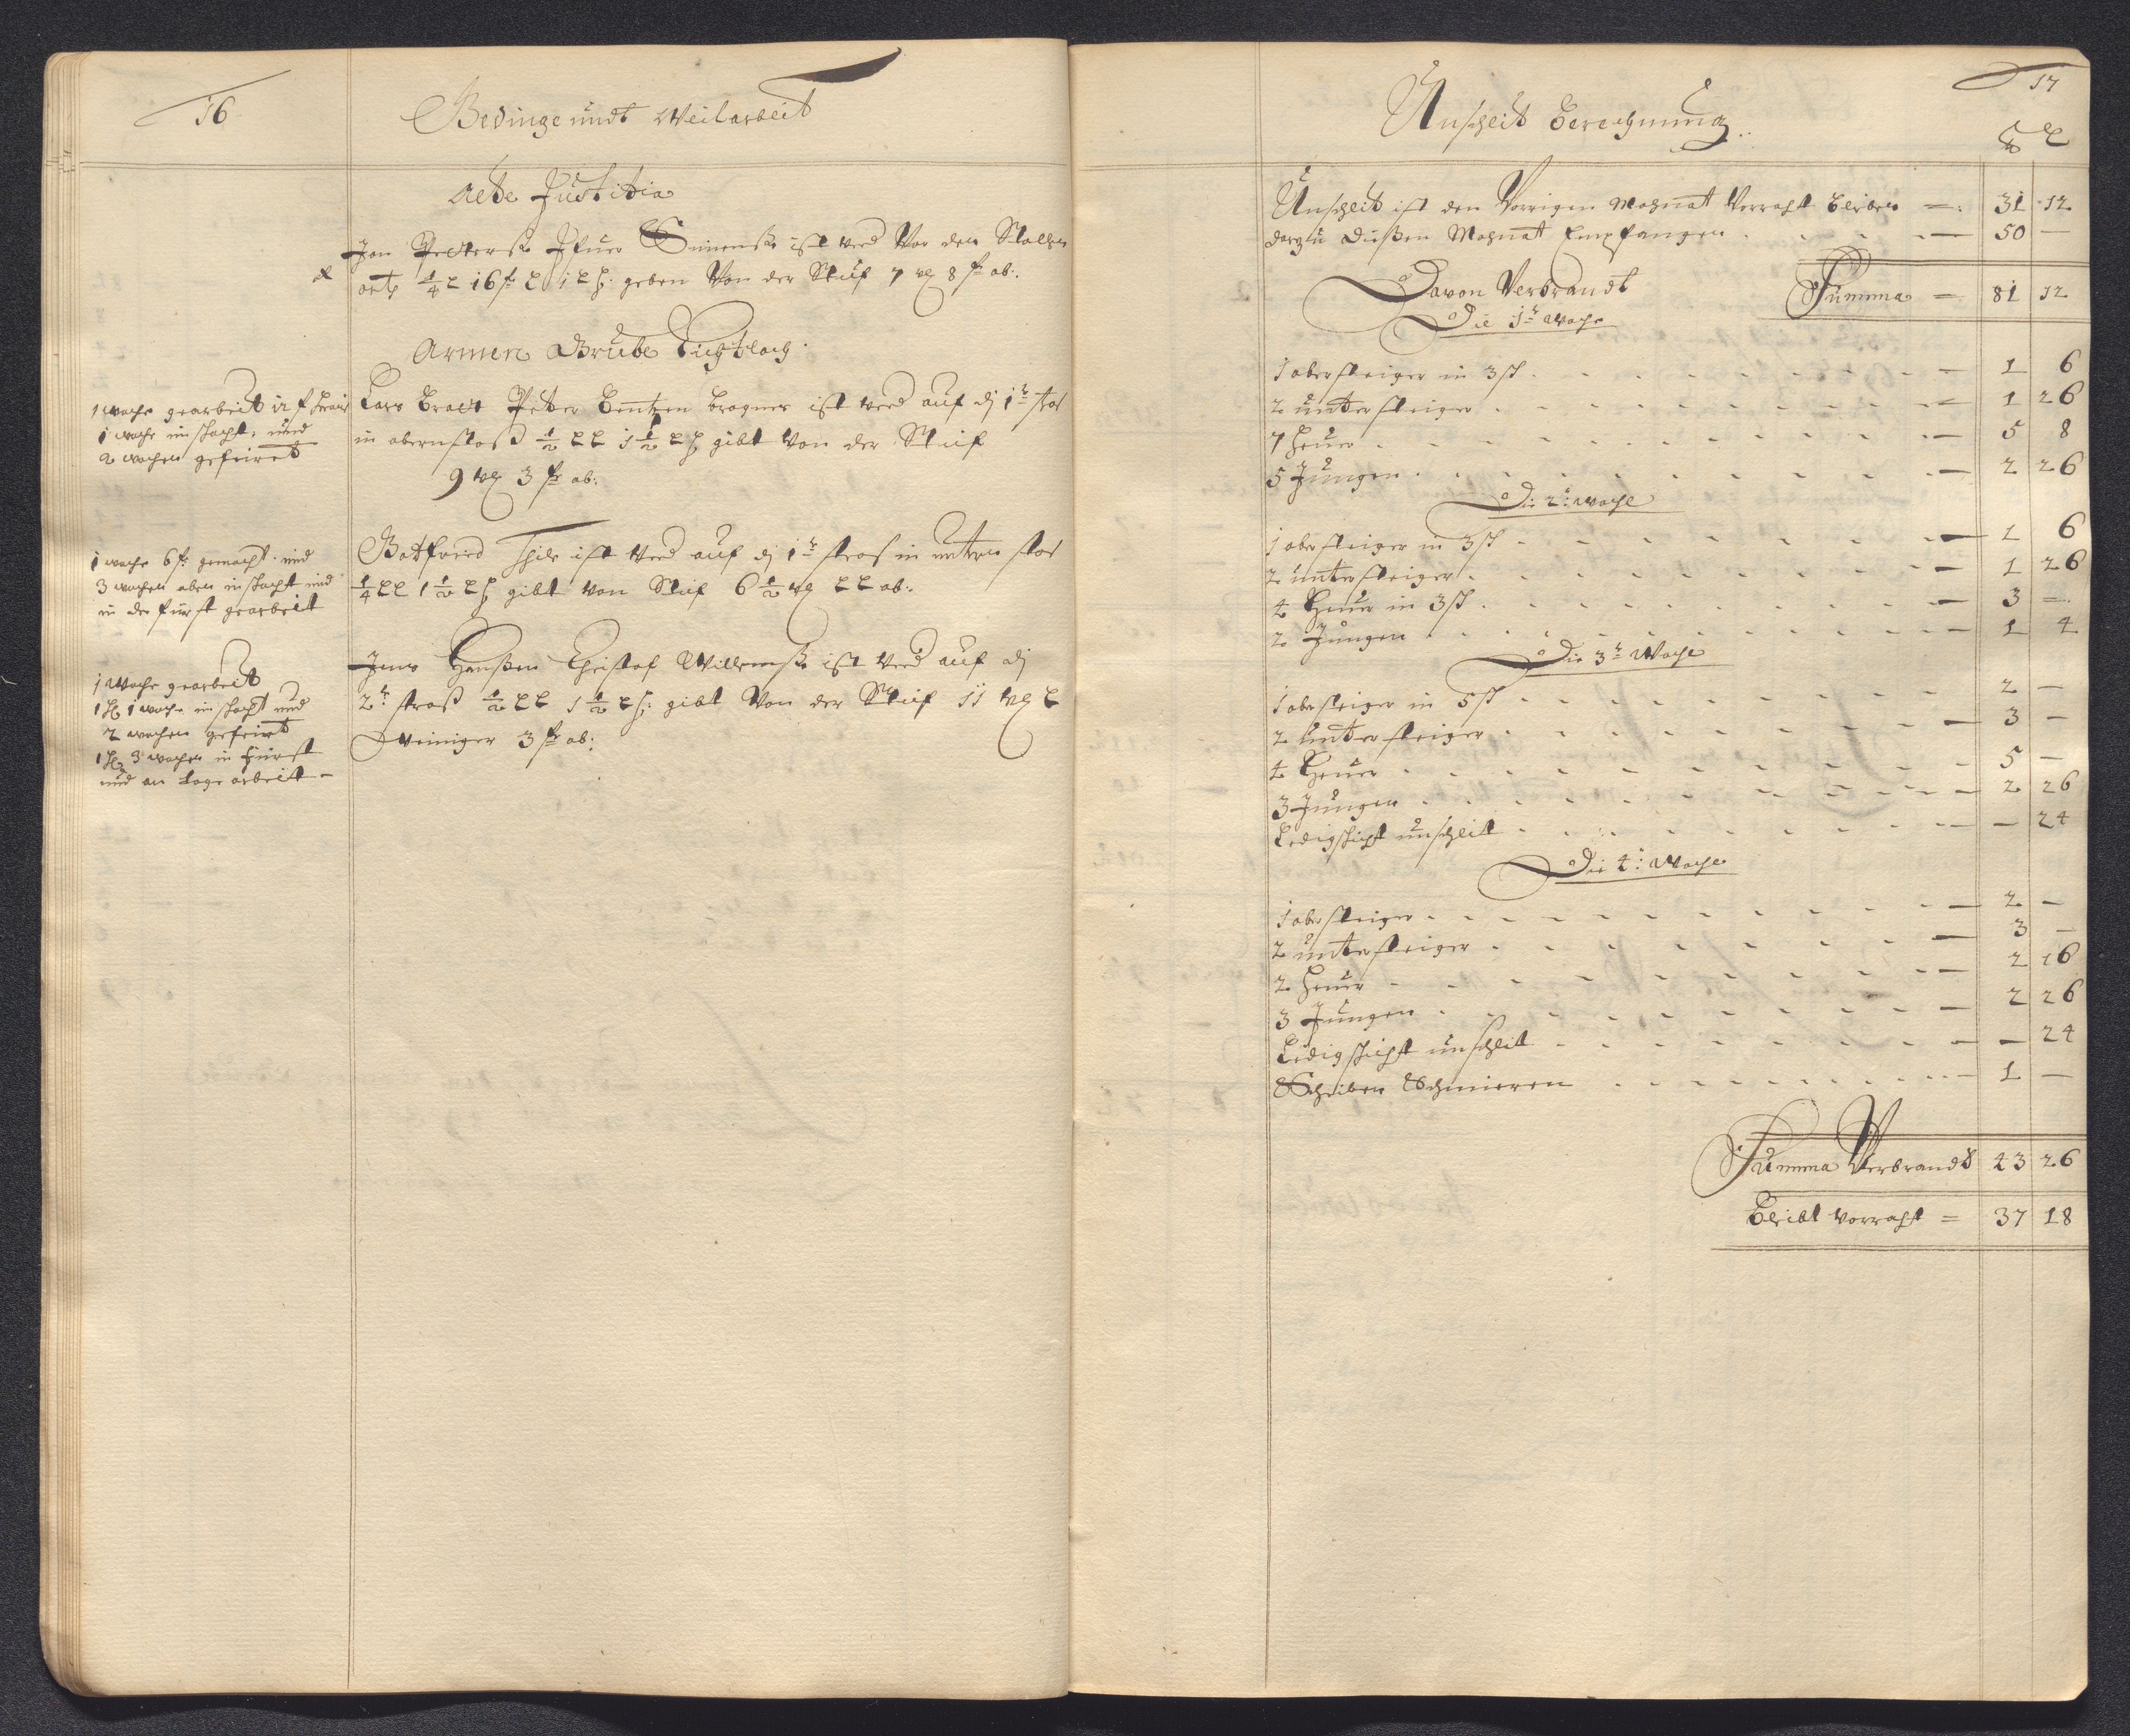 16
Bedinge undt Weilarbeit
Alte Justitia
Jon Peders Ifuer Simensß ist verd Vor den Stollen
ortß 1/4 16 geben Von der Stuf 7 8 ab:
Armen Grube Tiestlach
1 woche gearbeit
1 woche im schacht und
2 wochen gefeiret
Lars Peter Bentzen Cragner ist verd auf dj 1te stros
in obernstoß 1/2 1 1/2 gibt Von der Stuif
9 3 ab:
1 woche 6 fr gemacht und
3 wochen oben in schacht und
in der fürst gearbeit
Gottfried Thile ist verd auf dj 1te stros in untern stos
1/4 1 1/2 gibt von Stuf 6 1/2 ab:
1 Woche gearbeit
1 1 woche in schacht und
2 wochen gefeiret
1 3 wochen in fürst
und an tage arbeit
Jens Hanßen Christof Willemsß ist verd auf dj
2te stroß 1/2 1 1/2 gibt Von der Stuif 11
weiniger 3 ab:
17
Unschlit Berechnung
Unschlit ist den Vorrigen Mohnat Verraht bliben 31 12
darzu dießen Mohnat Empfangen 50 —
Davon Verbrandt Summa 81 12
Die 1te woche
1 obersteiger in 3 sch 1 6
2 untersteiger 1 26
7 heuer 5 8
5 Jungen 2 26
Die 2te woche
1 obersteiger in 3 sch 1 6
2 untersteiger 1 26
4 Heuer in 3 sch 3 —
2 Jungen 1 4
Die 3te Woche
1 obersteiger in 5 sch 2 —
2 untersteiger 3 —
4 Heuer 5 —
3 Jungen 2 26
Ledigschicht unschlit — 24
Die 4te Woche
1 obersteiger 2 —
2 untersteiger 3 —
2 heuer 2 16
3 Jungen 2 26
Ledigschicht unschlit — 24
Scheiben Schmieren 1 —
Summa Verbrandt 43 26
Bleibt Vorraht = 37 18